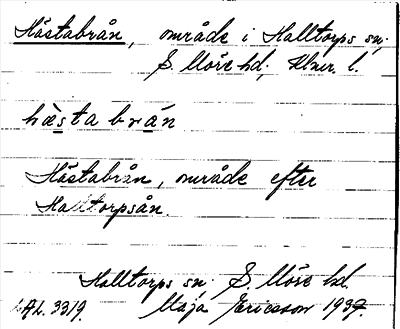 Hästabrån, område i Halltorps sn;
S. Möre hd; Klmr. l.
hæ̀sta brán
Hästabrån, område efter
Halltorpsån.
Halltorps sn. S. Möre hd.
ULMA 3319. Maja Ericsson 1937.